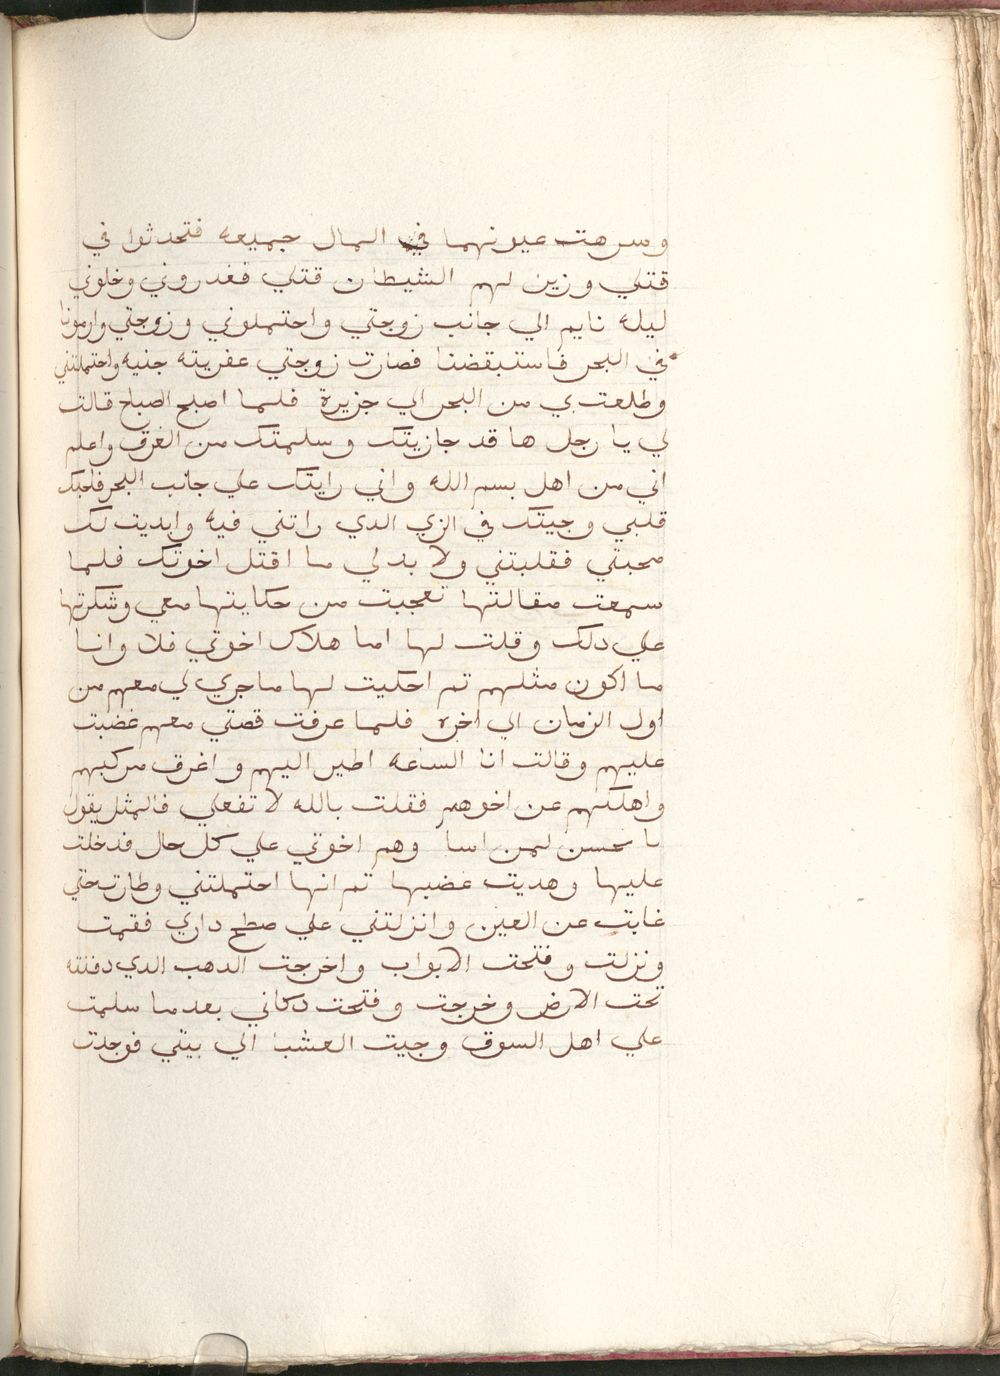 وسرهت عيونهما في المال جميعه فتحدثوا في
قتلي وزين لهم الشيطان قتلي فغدروني وخلوني
ليله نايم الي جانب زوجتي واحتملوني وزوجتي وارمونا
في البحر فاستيقضنا فصارت زوجتي عفريته جنيه واحتملتني
وطلعت بي من البحر الي جزيرة فلما اصبح الصباح قالت
لي يا رجل ها قد جازيتك وسلمتك من الغرق واعلم
اني من اهل بسم الله واني رايتك علي جانب البحر فاحبك
قلبي وجيتك في الزي الدي راتني فيه وابديت لك
محبتي فقلبتني ولا بد لي ما اقتل اخوتك فلما
سمعت مقالتها تعجبت من حكايتها معي وشكرتها
علي دلك وقلت لها اما هلاك اخوتي فلا وانا
ما اكون مثلهم تم احكيت لها ما جري لي معهم من
اول الزمان الي اخره فلما عرفت قصتي معهم غضبت
عليهم وقالت انا الساعه اطير اليهم واغرق مركبهم
واهلكهم عن اخرهم فقلت بالله لا تفعلي فالمثل يقول
يا محسن لمن اسا وهم اخوتي علي كل حال فدخلت
عليها وهديت غضبها تم انها احتملتني وطارت حتي
غابت عن العين وانزلتني علي صطح داري فقمت
ونزلت وفتحت الابواب واخرجت الدهب الدي دفنته
تحت الارض وخرجت وفتحت دكاني بعدما سلمت
علي اهل السوق وجيت العشا الي بيتي فوجدت